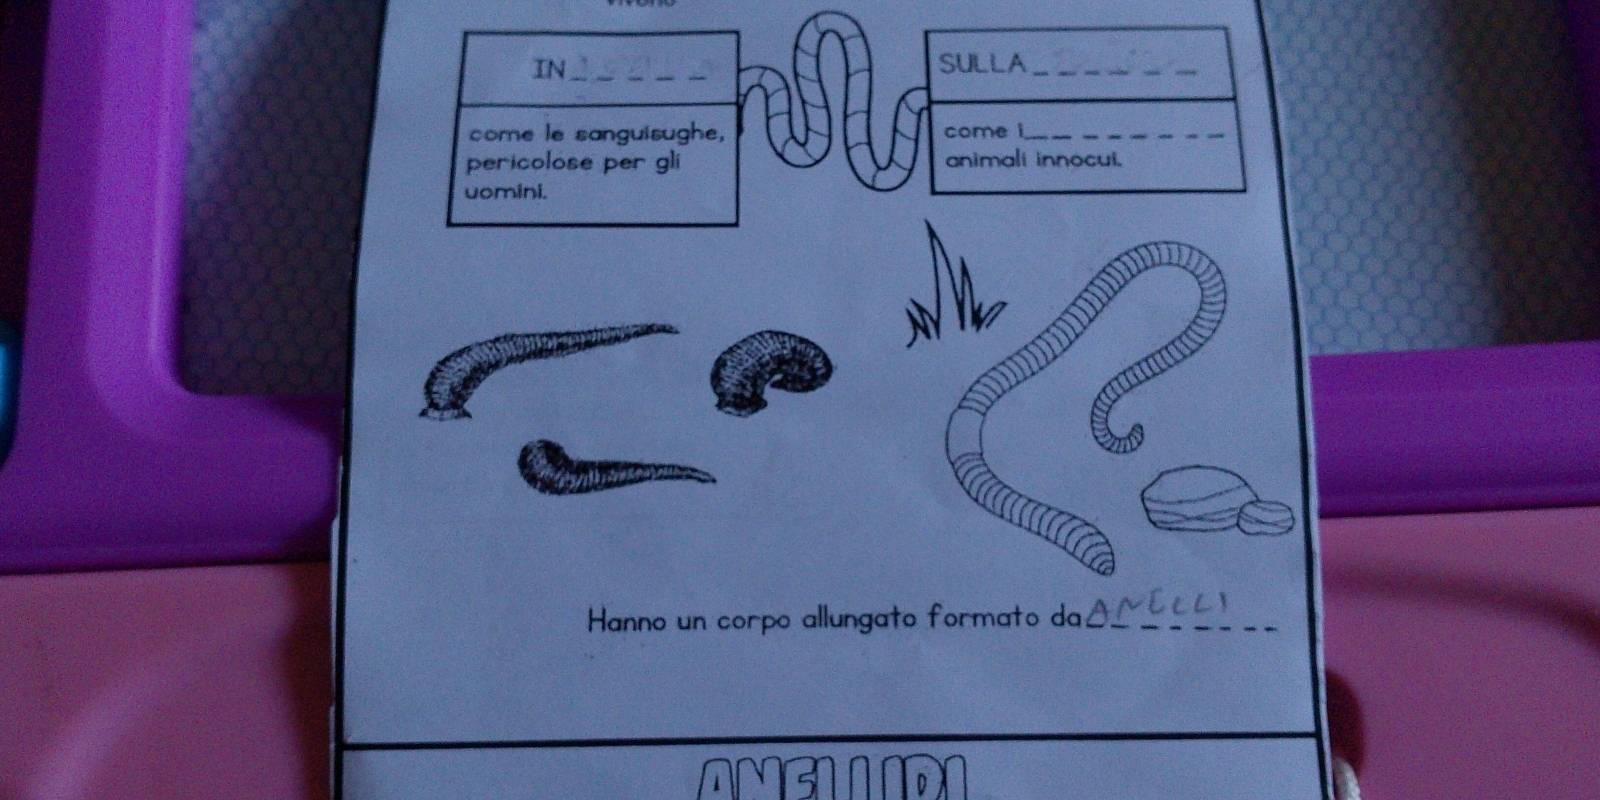 vivono
IN _ _ _ _ _
come le sanguisughe,
pericolose per gli
uomini.
SULLA _ _ _ _ _ _
come i_ _ _ _ _ _ _ _
animali innocui.
Hanno un corpo allungato formato da ANELLI
ANELLIDI